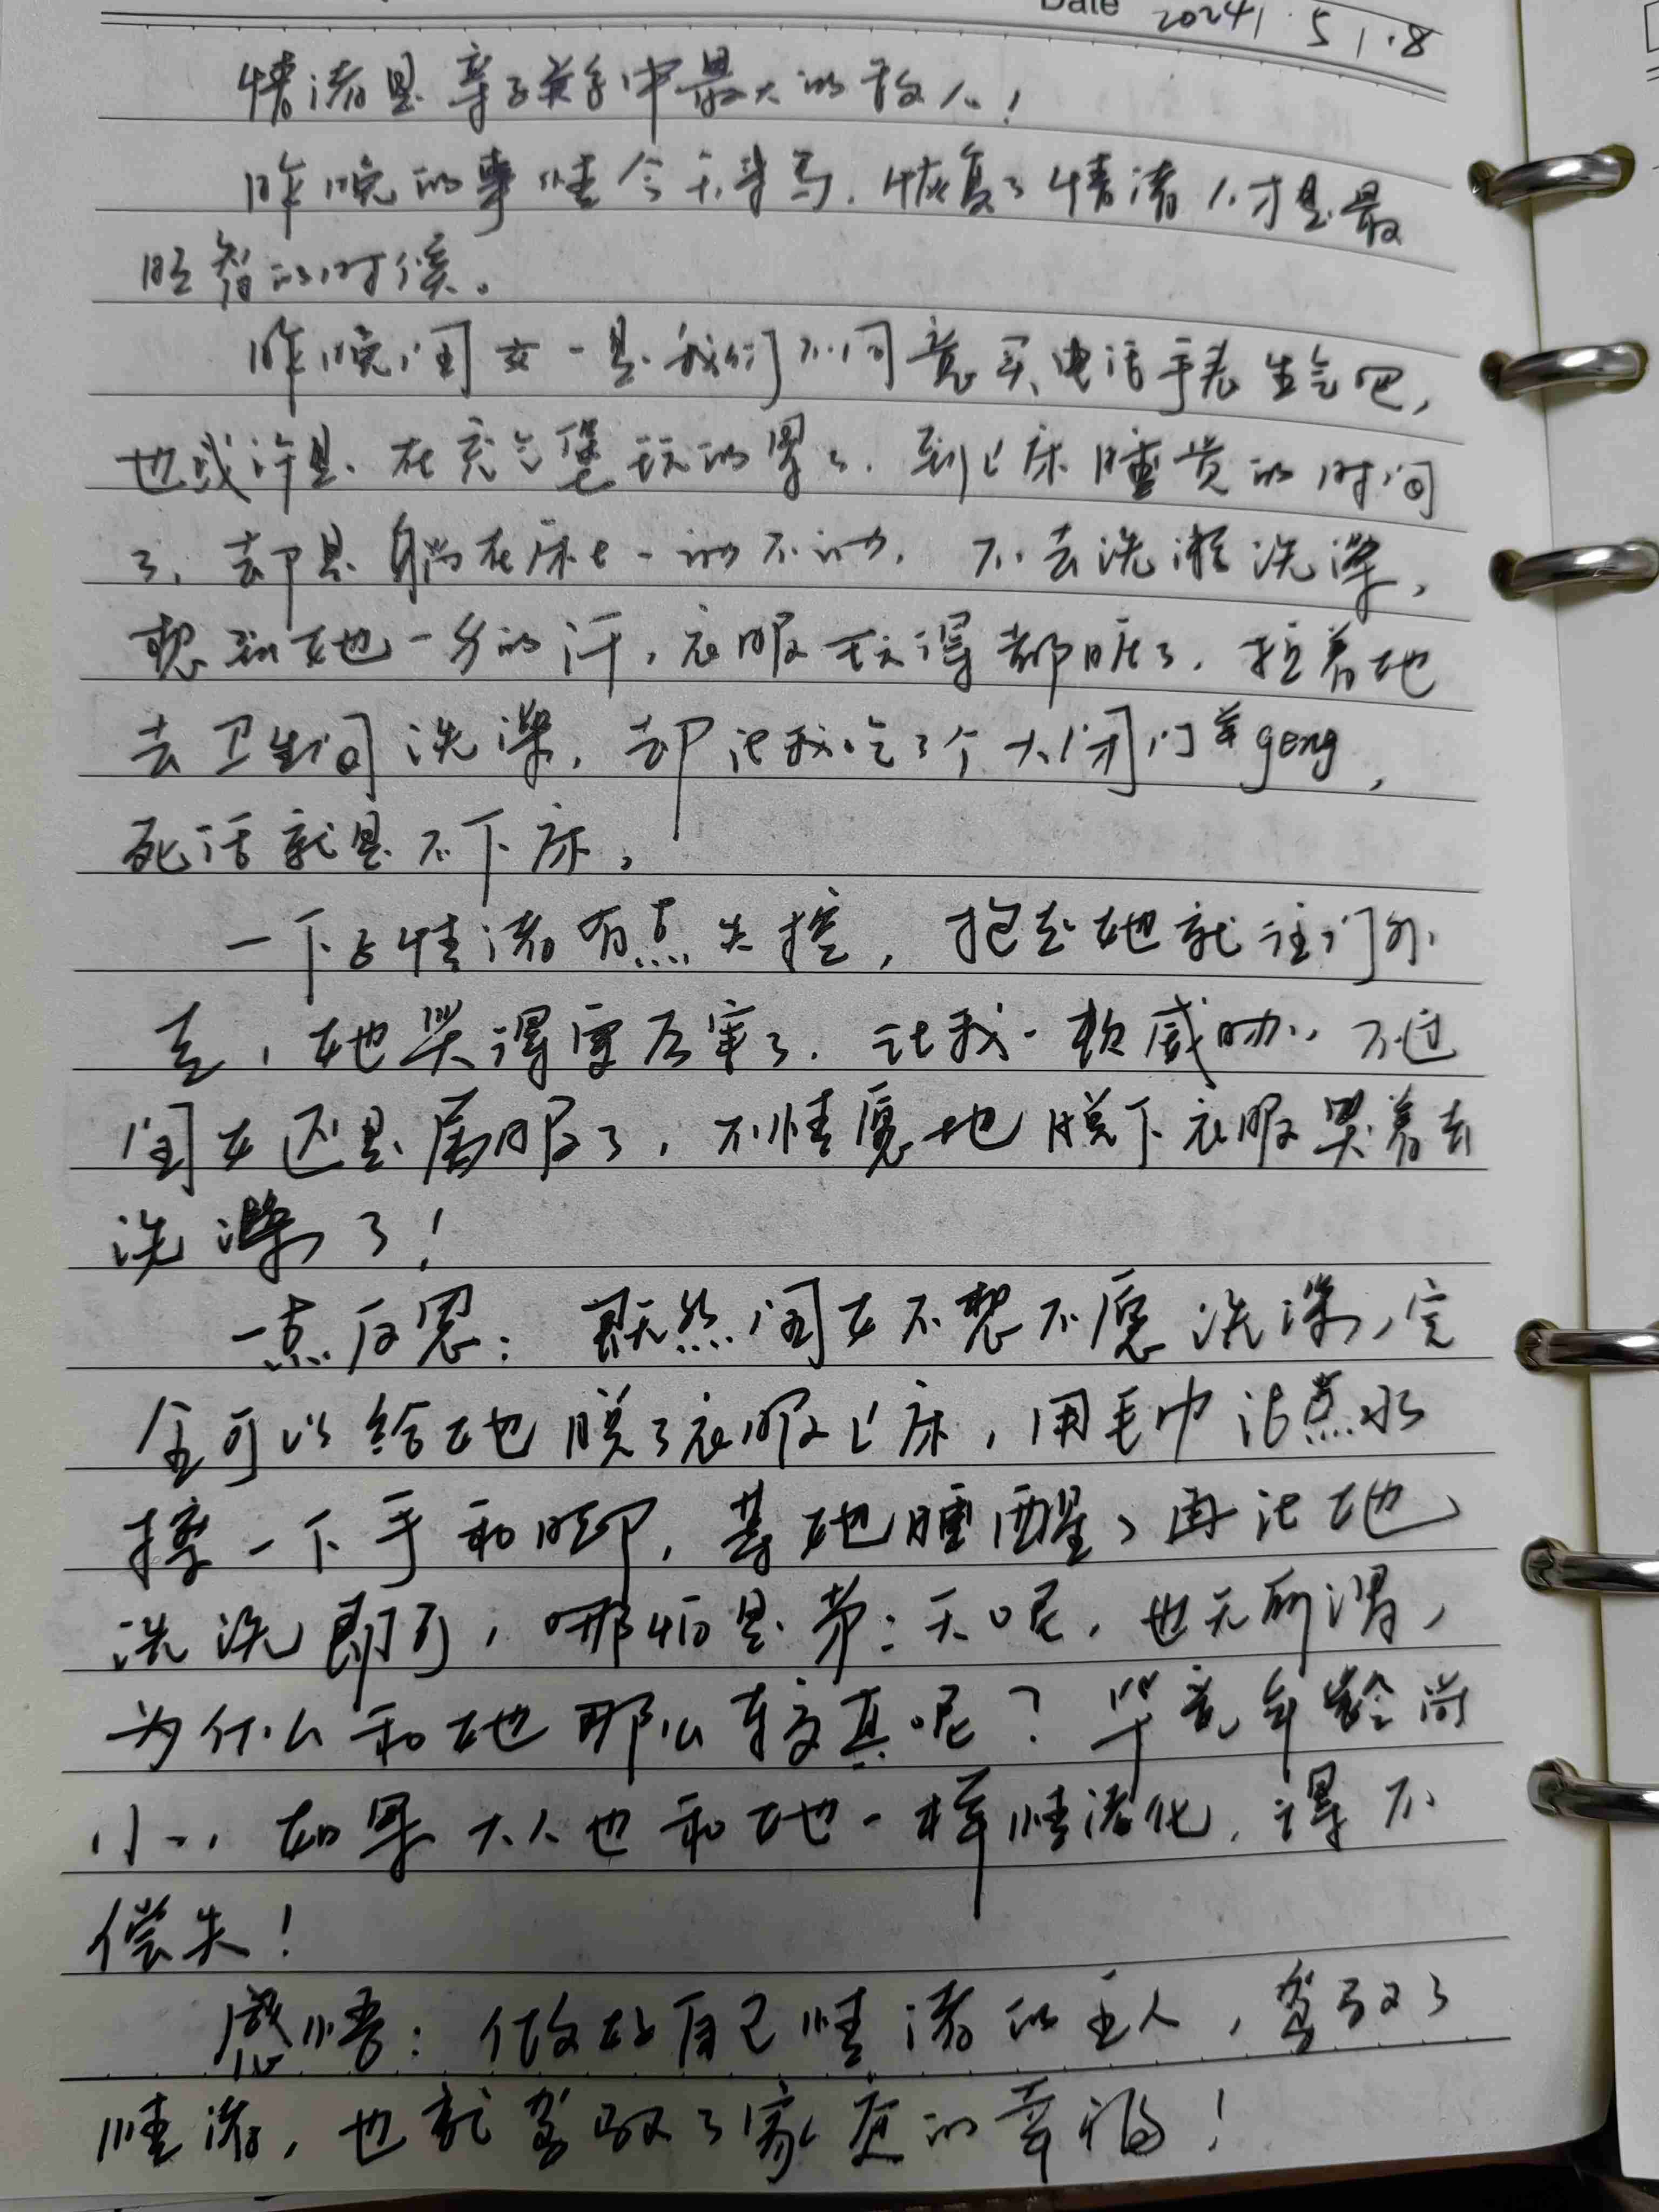 Date 2024.5.8
情绪是亲子关系中最大的敌人！
昨晚的事情今天来写，恢复了情绪人才是最
旺智的时候。
昨晚闺女一是我们不同意买电话手表生气吧，
也或许是在充气堡玩的累了，到上床睡觉的时间
了，却是躺在床上一动不动，不去洗漱洗澡，
想到她一身的汗，衣服玩得都脏了，拉着她
去卫生间洗澡，却让我吃了个大闭门羹geng，
死活就是不下床，
一下子情绪有点失控，抱起她就往门外
走，她哭得更厉害了，让我一顿威吓，不过
闺女还是屈服了，不情愿地脱下衣服哭着去
洗澡了！
一点反思：既然闺女不想不愿洗澡，完
全可以给她脱了衣服上床，用毛巾沾点水
擦一下手和脚，等她睡醒了再让她
洗洗即可，哪怕是第二天呢，也无所谓，
为什么和她那么较真呢？毕竟年龄尚
小，如果大人也和她一样情绪化，得不
偿失！
感悟：做好自己情绪的主人，驾驭了
情绪，也就驾驭了家庭的幸福！